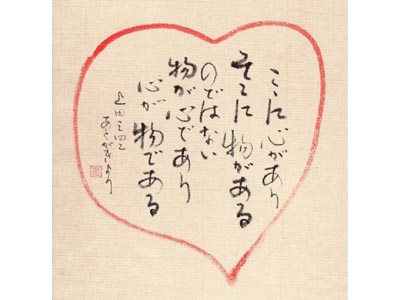 ここに心があり
そこに物がある
のではない
物が心であり
心が物である
上田三四二